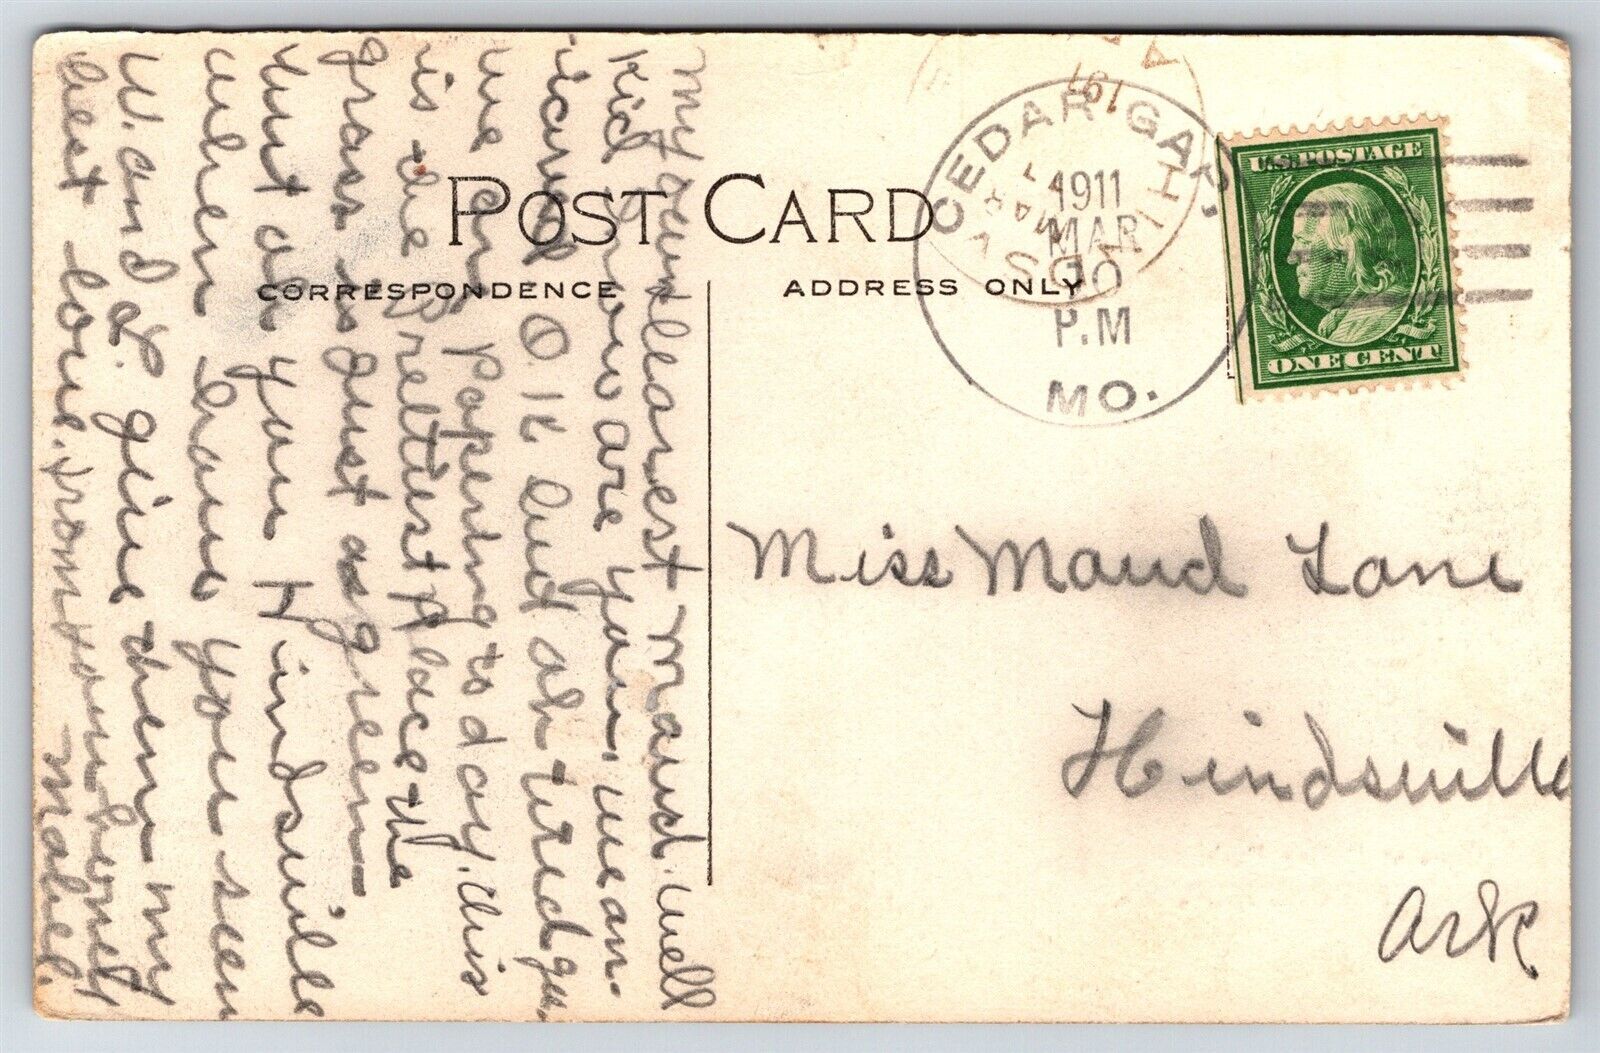 POST CARD
CORRESPONDENCE
ADDRESS ONLY
CEDAR GAP,
1911
MAR
P.M
MO.
U.S. POSTAGE
ONE CENT
My own dearest Maud. Well
Kid how are you, we an
O.K. but oh tired
we are Papering to day, this
is the Prettiest Place the
grass is just as green
but oh you Hindsville
when have you seen
W. and L. give them my
best love. from your lonely
Mabel.
Miss Maud Lane
Hindsville
Ark